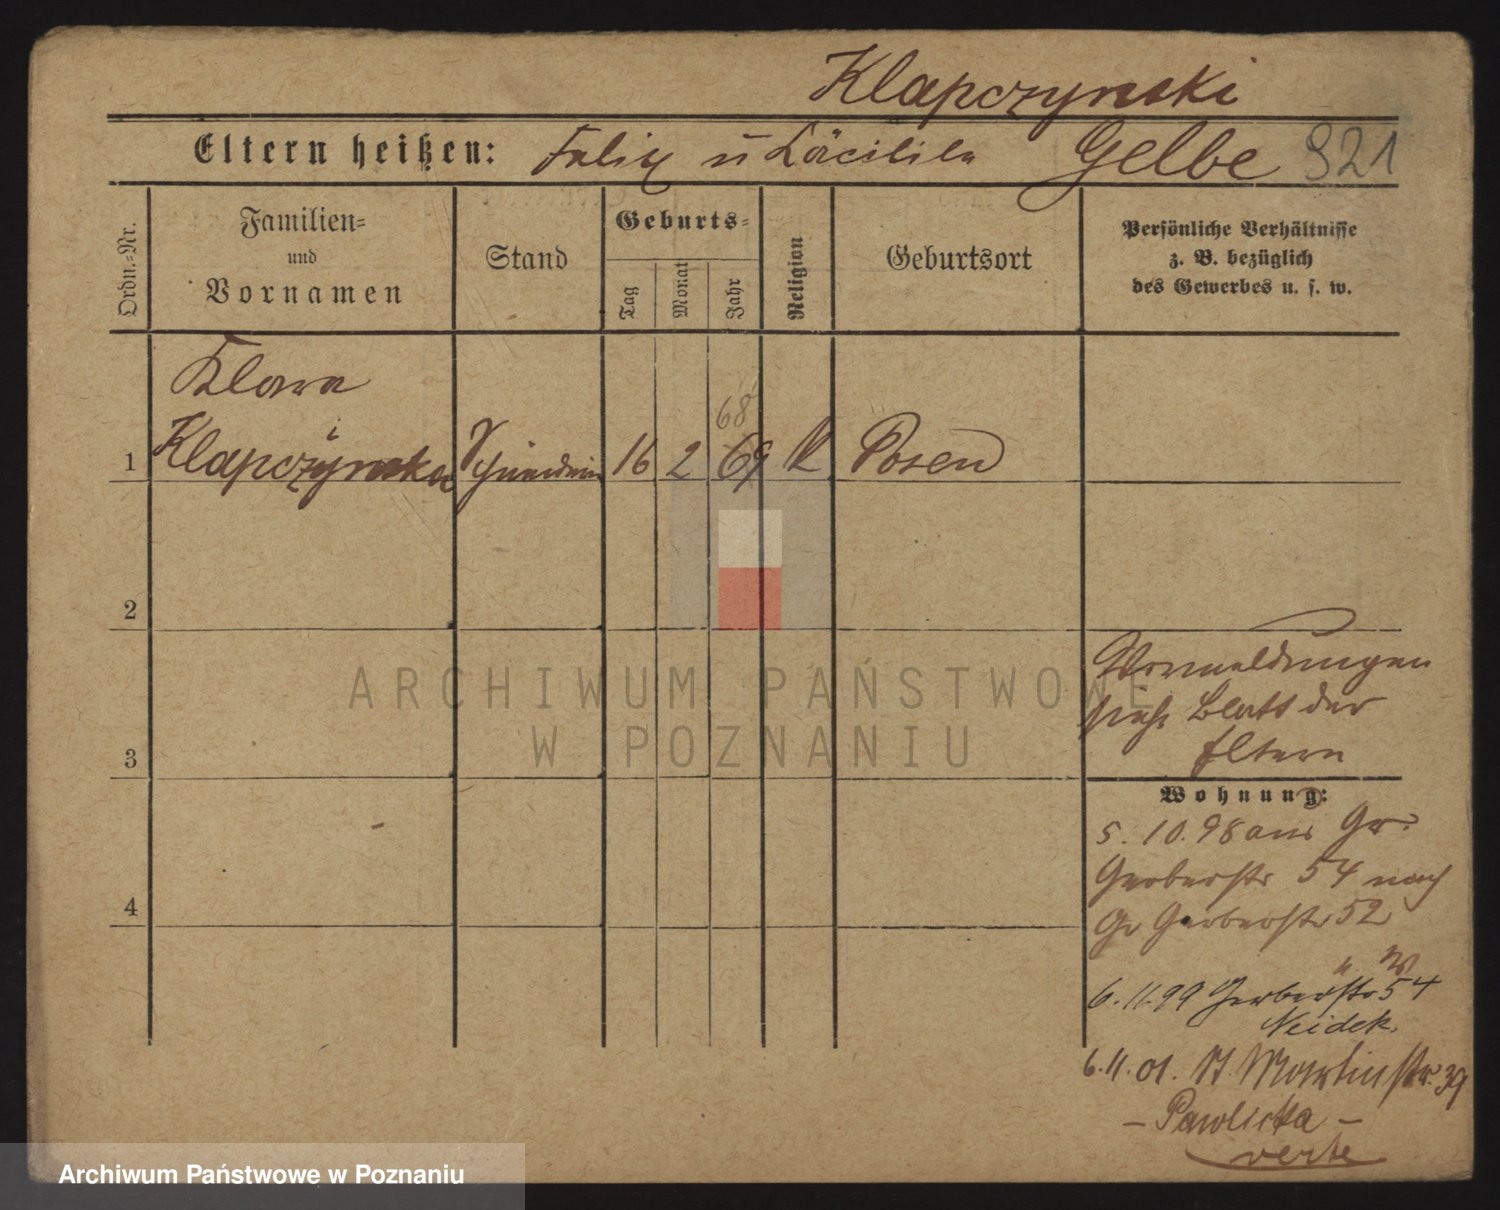 Klapczynski
Eltern heißen: Felix u Cäcilie Gelbe 821
Ordn.-Nr.
Familien-
und
Vornamen
Stand
Geburts-
Tag
Monat
Jahr
Religion
Geburtsort
Persönliche Verhältnisse
z. B. bezüglich
des Gewerbes u. s. w.
Klara
68
1 Klapczynska 16 2 69 K Posen
2
Vormeldungen
siehe Blatt der
3 Eltern
ARCHIWUM PAŃSTWOWE
W POZNANIU
Wohnung:
5. 10. 98 aus Gr.
Gerberstr 54 nach
4
Gr Gerberstr 52
6. 11. 99 Gerberstr 54
Neidek.
6. 11. 01. St Martinstr. 39
– Pawlicka –
verte
Archiwum Państwowe w Poznaniu